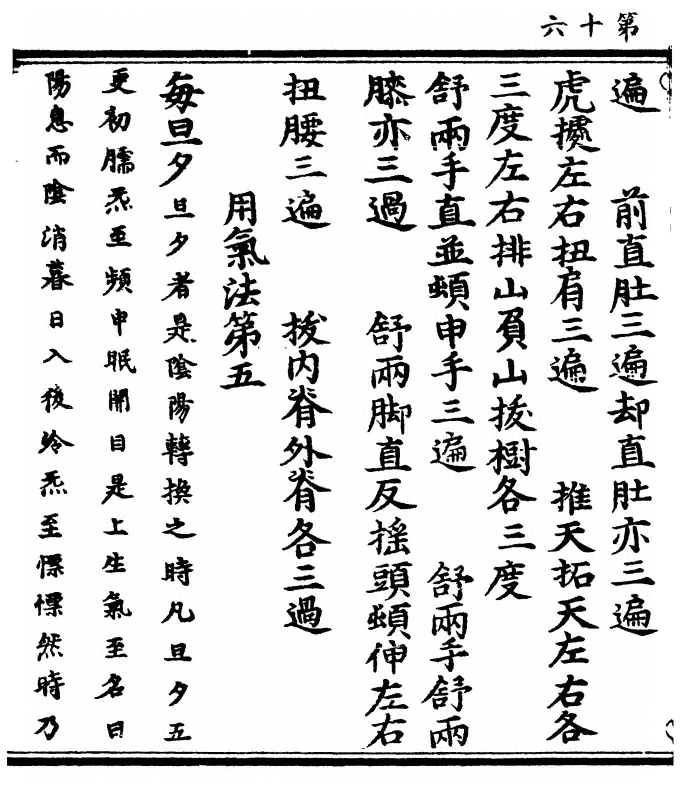 第十六
遍　前直肚三遍却直肚亦三遍
虎攫左右扭肩三遍　推天拓天左右各
三度左右排山負山拔樹各三度
舒兩手直並頓申手三遍　舒兩手舒兩
膝亦三過　舒兩脚直反搖頭頓伸左右
扭腰三遍　拔內脊外脊各三過
用氣法第五
每旦夕旦夕者是陰陽轉換之時凡旦夕五
更初臑炁至頻申眠開目是上生氣至名曰
陽息而陰消暮日入後冷炁至慓慓然時乃